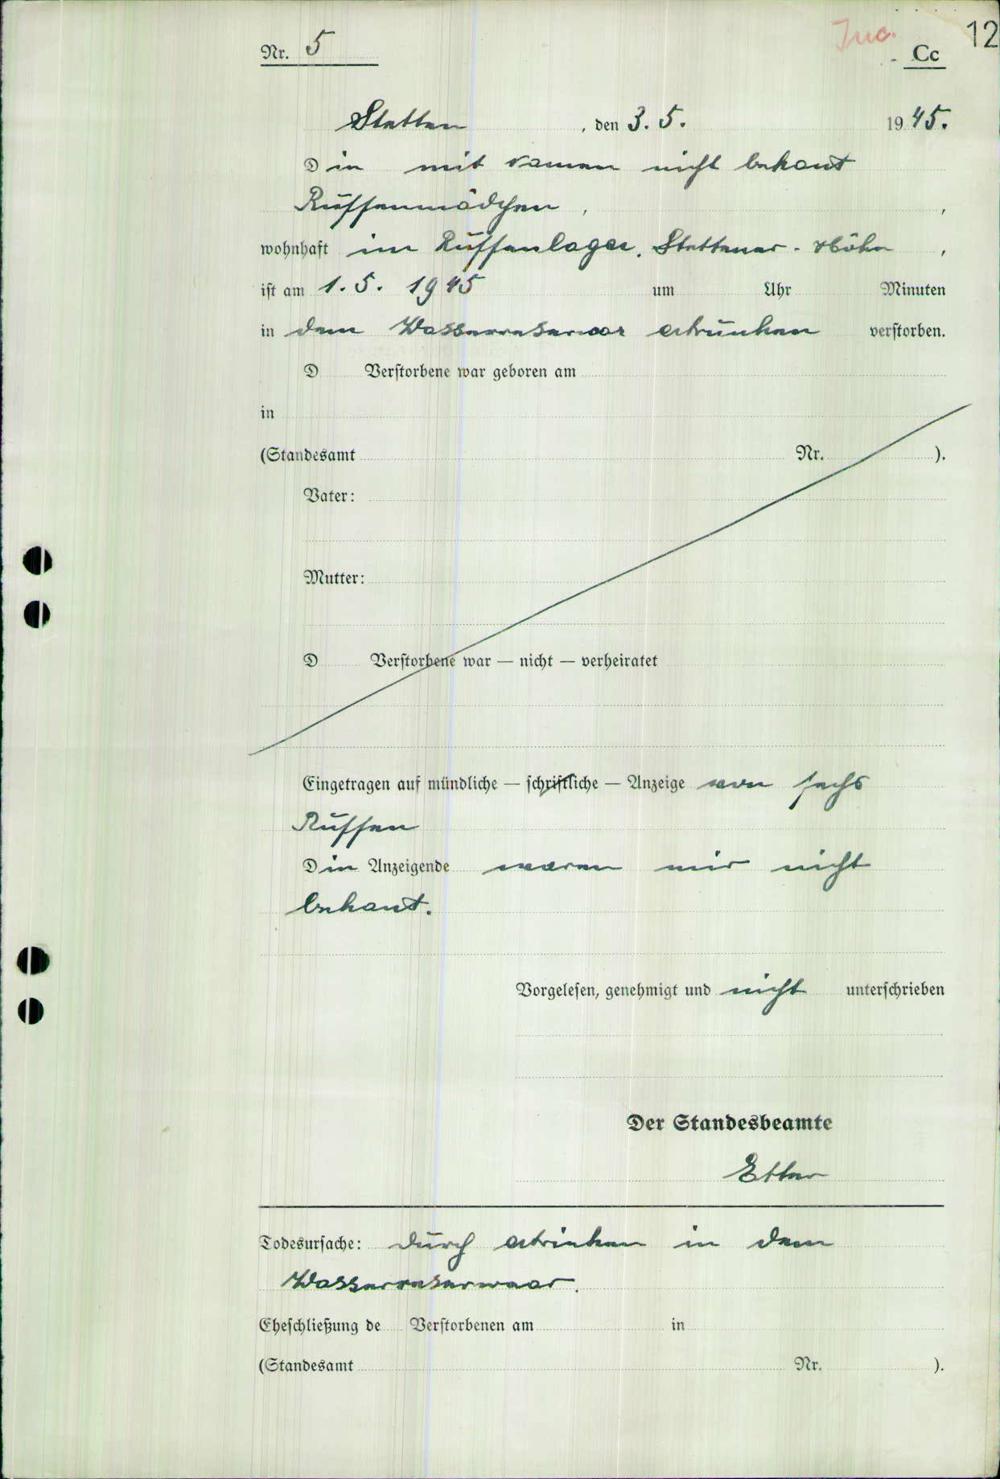 Juc. 12
Nr. 5 Cc
Stetten, den 3. 5. 1945.
Die mit Namen nicht bekant
Russenmädchen,
wohnhaft im Russenlager. Stettener-Höhe,
ist am 1. 5. 1945 um Uhr Minuten
in dem Wasserreserwoar ertrunken verstorben.
D Verstorbene war geboren am
in
(Standesamt Nr. ).
Vater:
Mutter:
D Verstorbene war — nicht — verheiratet
Eingetragen auf mündliche — schriftliche — Anzeige von sechs
Russen
Die Anzeigende waren mir nicht
bekant.
Vorgelesen, genehmigt und nicht unterschrieben
Der Standesbeamte
Etter
Todesursache: durch ertrinken in dem
Wasserreserwoar.
Eheschließung de Verstorbenen am in
(Standesamt Nr. ).